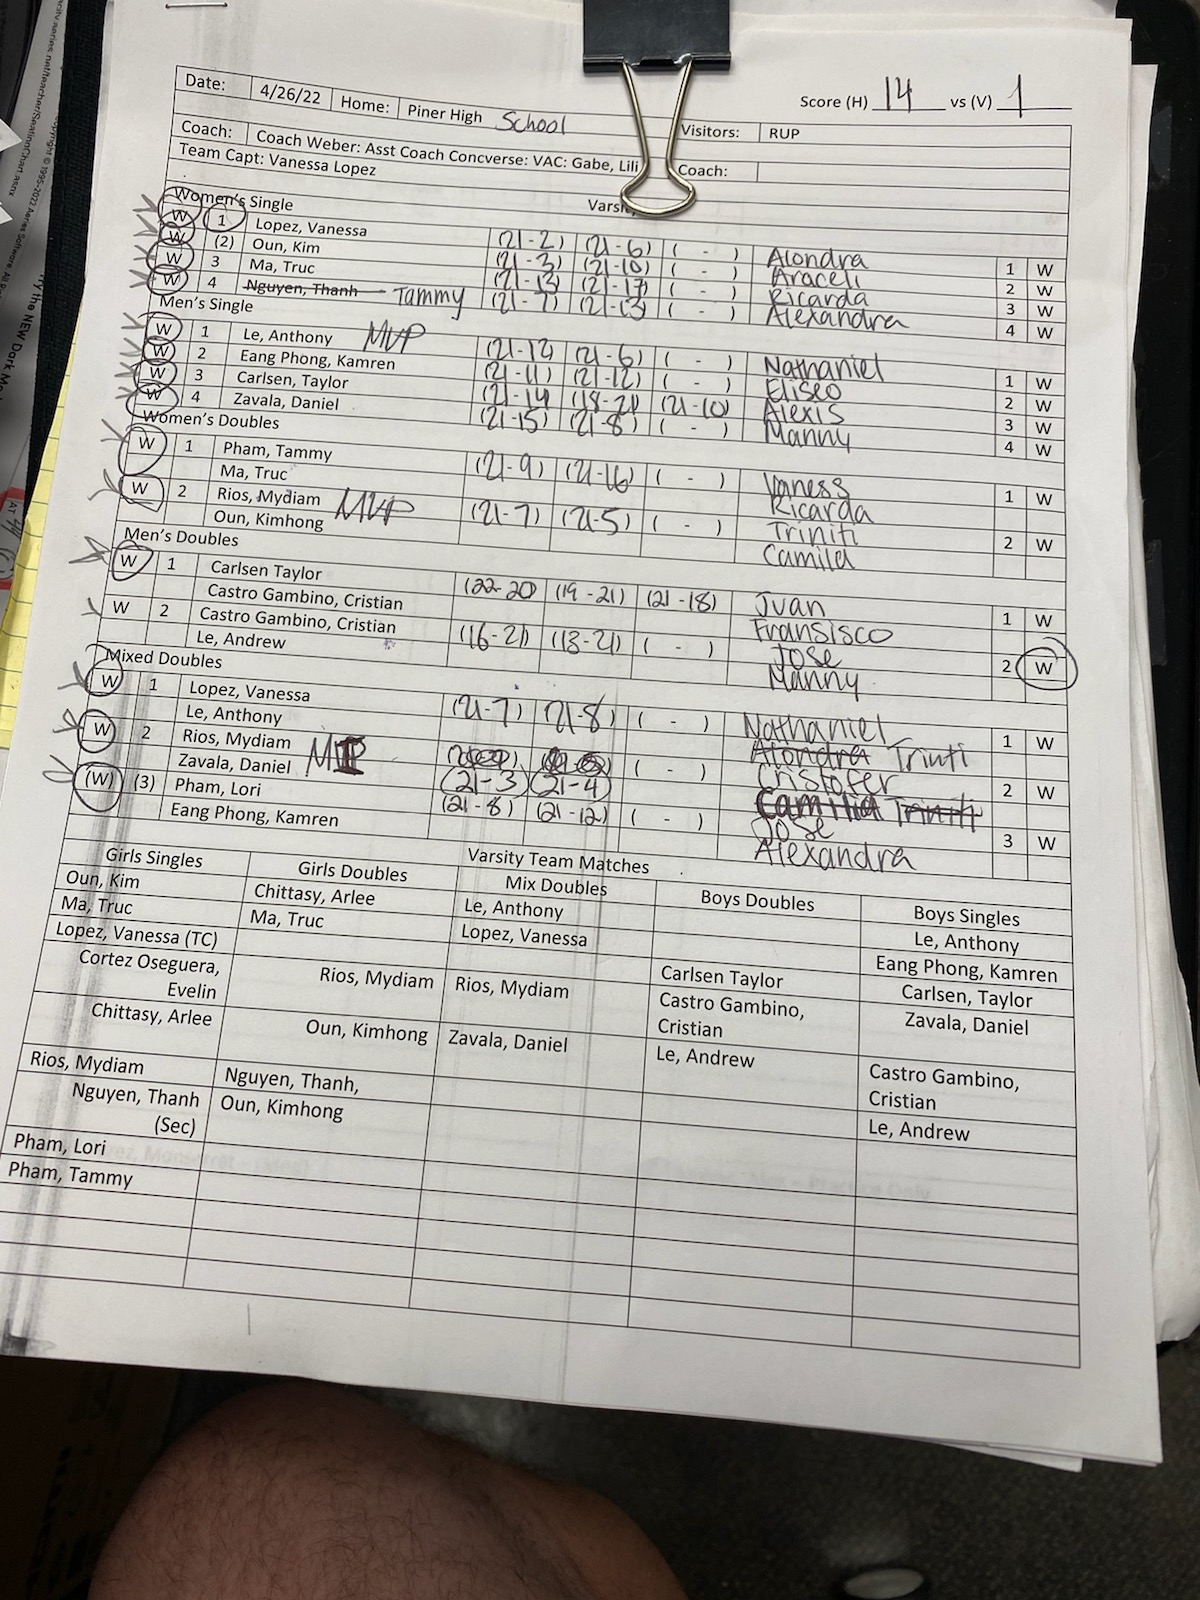 Score (H) 14 vs (V) 1
Date: 4/26/22 Home: Piner High School Visitors: RUP
Coach: Coach Weber: Asst Coach Concverse: VAC: Gabe, Lili Coach:
Team Capt: Vanessa Lopez
Women's Single
W 1 Lopez, Vanessa (21-2) (21-6) ( - ) Alondra 1 W
W (2) Oun, Kim (21-3) (21-10) ( - ) Araceli 2 W
W 3 Ma, Truc (21-13) (21-17) ( - ) Ricarda 3 W
W 4 Nguyen, Thanh Tammy (21-7) (21-13) ( - ) Alexandra 4 W
Men's Single
W 1 Le, Anthony MVP (21-12) (21-6) ( - ) Nathaniel 1 W
W 2 Eang Phong, Kamren (21-11) (21-12) ( - ) Eliseo 2 W
W 3 Carlsen, Taylor (21-14) (18-21) (21-10) Alexis 3 W
W 4 Zavala, Daniel (21-15) (21-8) ( - ) Manny 4 W
Women's Doubles
W 1 Pham, Tammy (21-9) (21-16) ( - ) Vaness 1 W
Ma, Truc Ricarda
W 2 Rios, Mydiam MVP (21-7) (21-5) ( - ) Triniti 2 W
Oun, Kimhong Camila
Men's Doubles
W 1 Carlsen Taylor (22-20) (19-21) (21-18) Juan 1 W
Castro Gambino, Cristian Fransisco
W 2 Castro Gambino, Cristian (16-21) (13-21) ( - ) Jose 2 W
Le, Andrew Manny
Mixed Doubles
W 1 Lopez, Vanessa (21-7) (21-8) ( - ) Nathaniel 1 W
Le, Anthony Alondra Triniti
W 2 Rios, Mydiam ( - ) Cristofer 2 W
Zavala, Daniel MVP (21-3) (21-4) Camilla Triniti
(W) (3) Pham, Lori (21-8) (21-12) ( - ) Jose 3 W
Eang Phong, Kamren Alexandra
Varsity Team Matches
Girls Singles Girls Doubles Mix Doubles Boys Doubles Boys Singles
Oun, Kim Chittasy, Arlee Le, Anthony Le, Anthony
Ma, Truc Ma, Truc Lopez, Vanessa Eang Phong, Kamren
Lopez, Vanessa (TC) Carlsen Taylor Carlsen, Taylor
Cortez Oseguera, Rios, Mydiam Rios, Mydiam Castro Gambino, Zavala, Daniel
Evelin Cristian
Chittasy, Arlee Oun, Kimhong Zavala, Daniel Le, Andrew Castro Gambino,
Cristian
Rios, Mydiam Nguyen, Thanh, Le, Andrew
Nguyen, Thanh Oun, Kimhong
(Sec)
Pham, Lori
Pham, Tammy